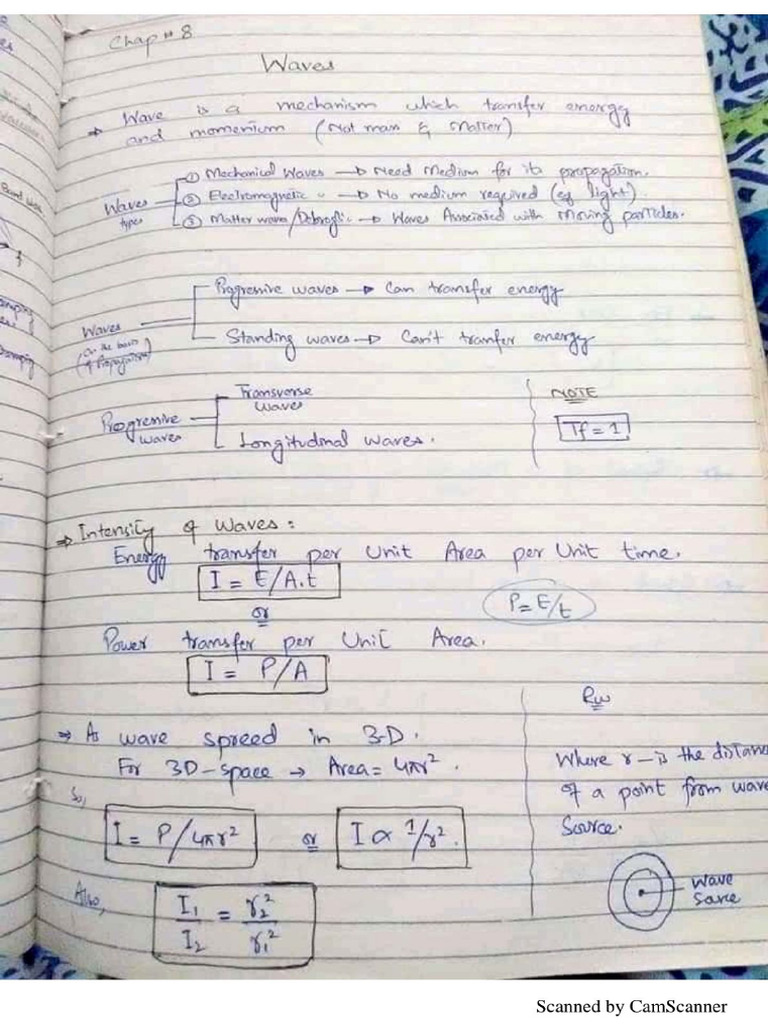 Chap # 8
Waves
⇒ Wave is a mechanism which transfer energy
and momentum (Not mass & Matter)
Waves types
① Mechanical Waves → Need Medium for its propagation.
② Electromagnetic " → No medium required (eg light).
③ Matter wave/Debroglie → Waves Associated with Moving particles.
Waves (On the basis of Propagation)
Progressive waves → Can transfer energy
Standing waves → Can't tranfer energy
Progressive waves
Transverse waves
Longitudinal waves.
NOTE
Tf = 1
⇒ Intensity of Waves:
Energy transfer per Unit Area per Unit time.
I = E/A.t
or
P = E/t
Power transfer per Unit Area.
I = P/A
⇒ As wave spreed in 3-D.
For 3D-space → Area = 4πr².
So,
I = P/4πr² or I ∝ 1/r².
Also,
I₁/I₂ = r₂²/r₁²
Rw
Where r – is the distance
of a point from wave
Source.
Wave
Sorce
Scanned by CamScanner